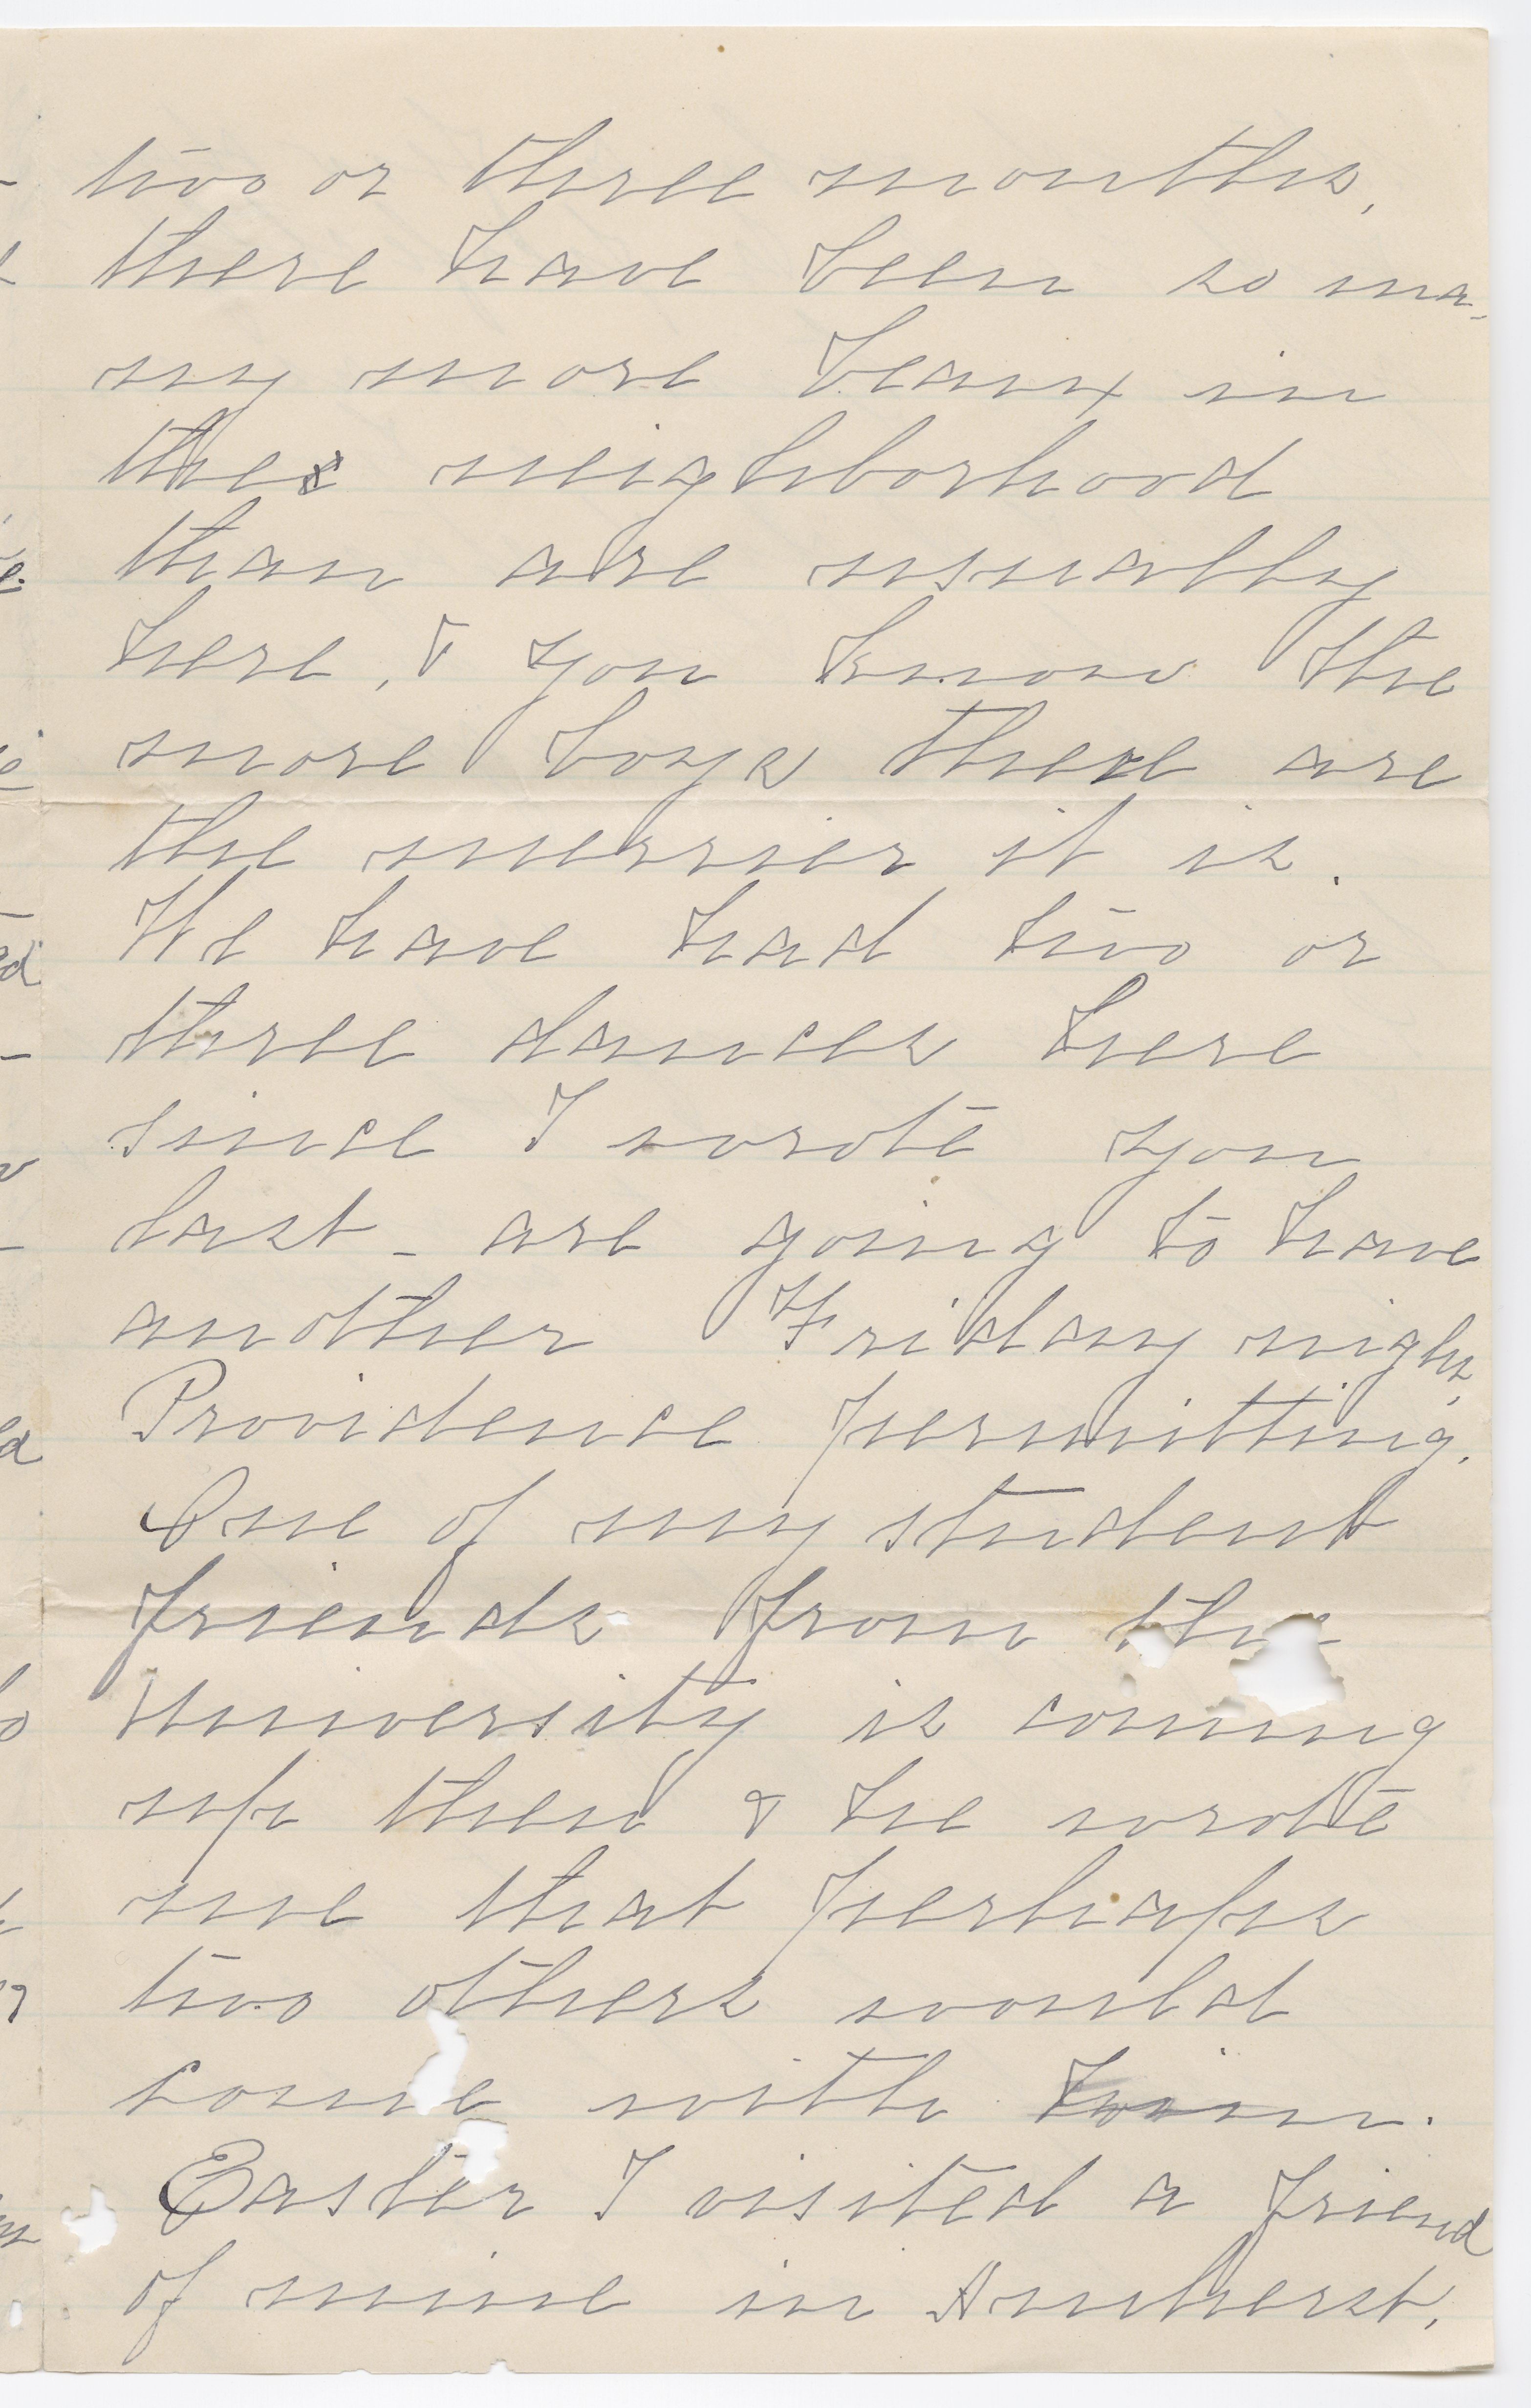 two or three months,
there have been so ma-
ny more beaux in
the neighborhood
than are usually
here, & you know the
more boys there are
the merrier it is.
We have had two or
three dances here
since I wrote you
last - are going to have
another Friday night,
Providence permitting.
One of my student
friends from the
University is coming
up then & he wrote
me that perhaps
two others would
come with him.
Easter I visited a friend
of mine in Amherst,